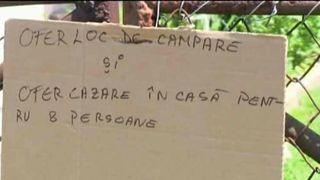 OFER LOC DE CAMPARE
ŞI
OFER CAZARE ÎN CASĂ PENT-
RU 8 PERSOANE